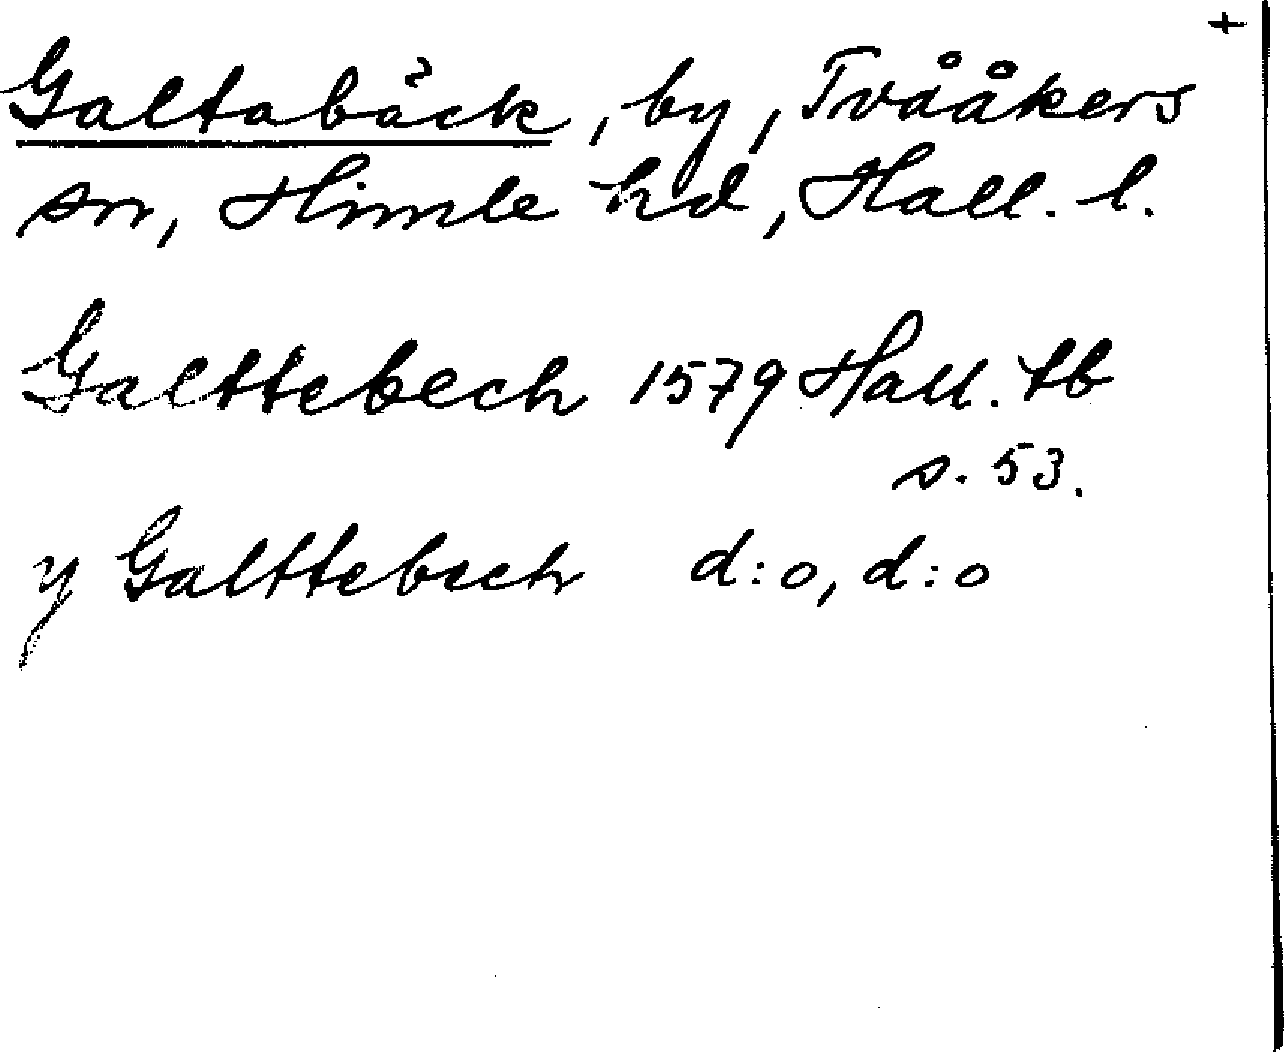 +
Galtabäck, by, Tvååkers
sn, Himle hd, Hall. l.
Galttebech 1579 Hall. tb
s. 53.
y Galttebech d:o, d:o